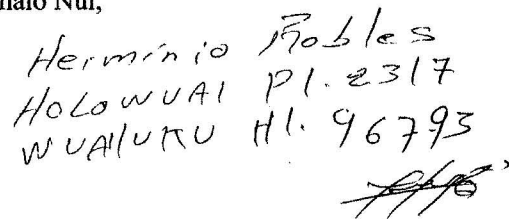 Herminio Robles
HOLOWUAI Pl. 2317
WUAILUKU HI. 96793